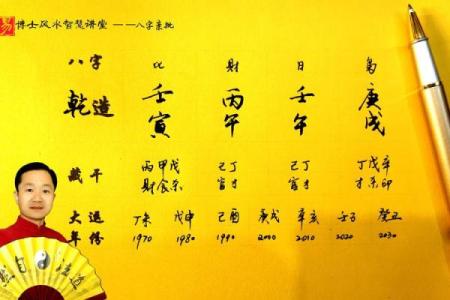 易 博士风水智慧讲堂 ——八字亲批
八字 比 財 日 梟
乾造 壬寅 丙午 壬午 庚戌
藏干 丙甲戊 己丁 己丁 丁戊辛
财食杀 官才 官才 才杀印
大运 丁未 戊申 己酉 庚戌 辛亥 壬子 癸丑
年份 1970 1980 1990 2000 2010 2020 2030